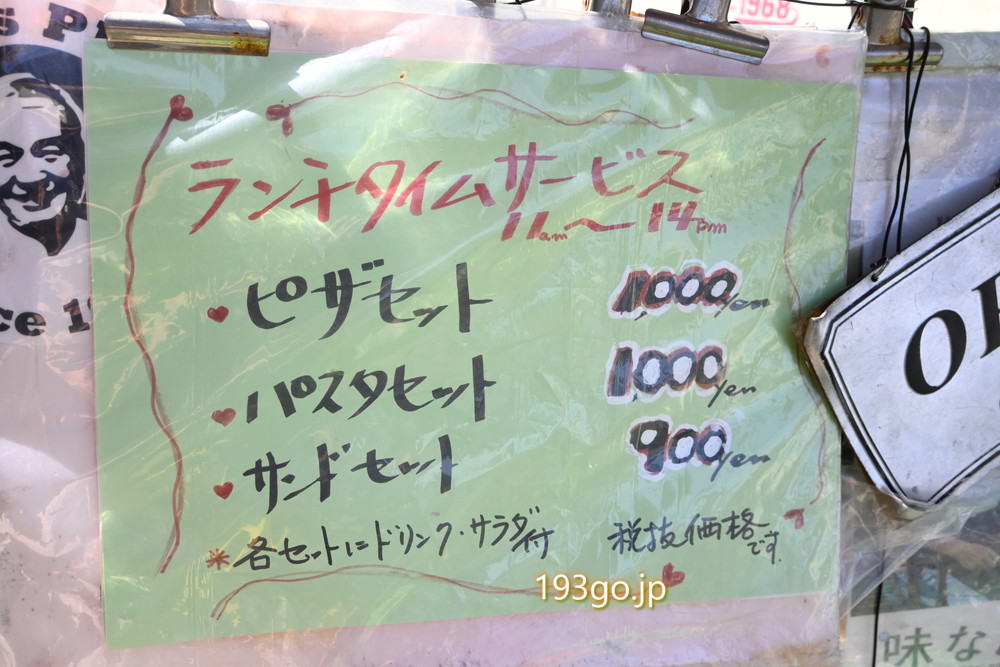 1968
ランチタイムサービス
11am〜14pm
ピザセット 1,000yen
パスタセット 1,000yen
サンドセット 900yen
※各セットにドリンク・サラダ付 税抜価格です。
193go.jp
味な